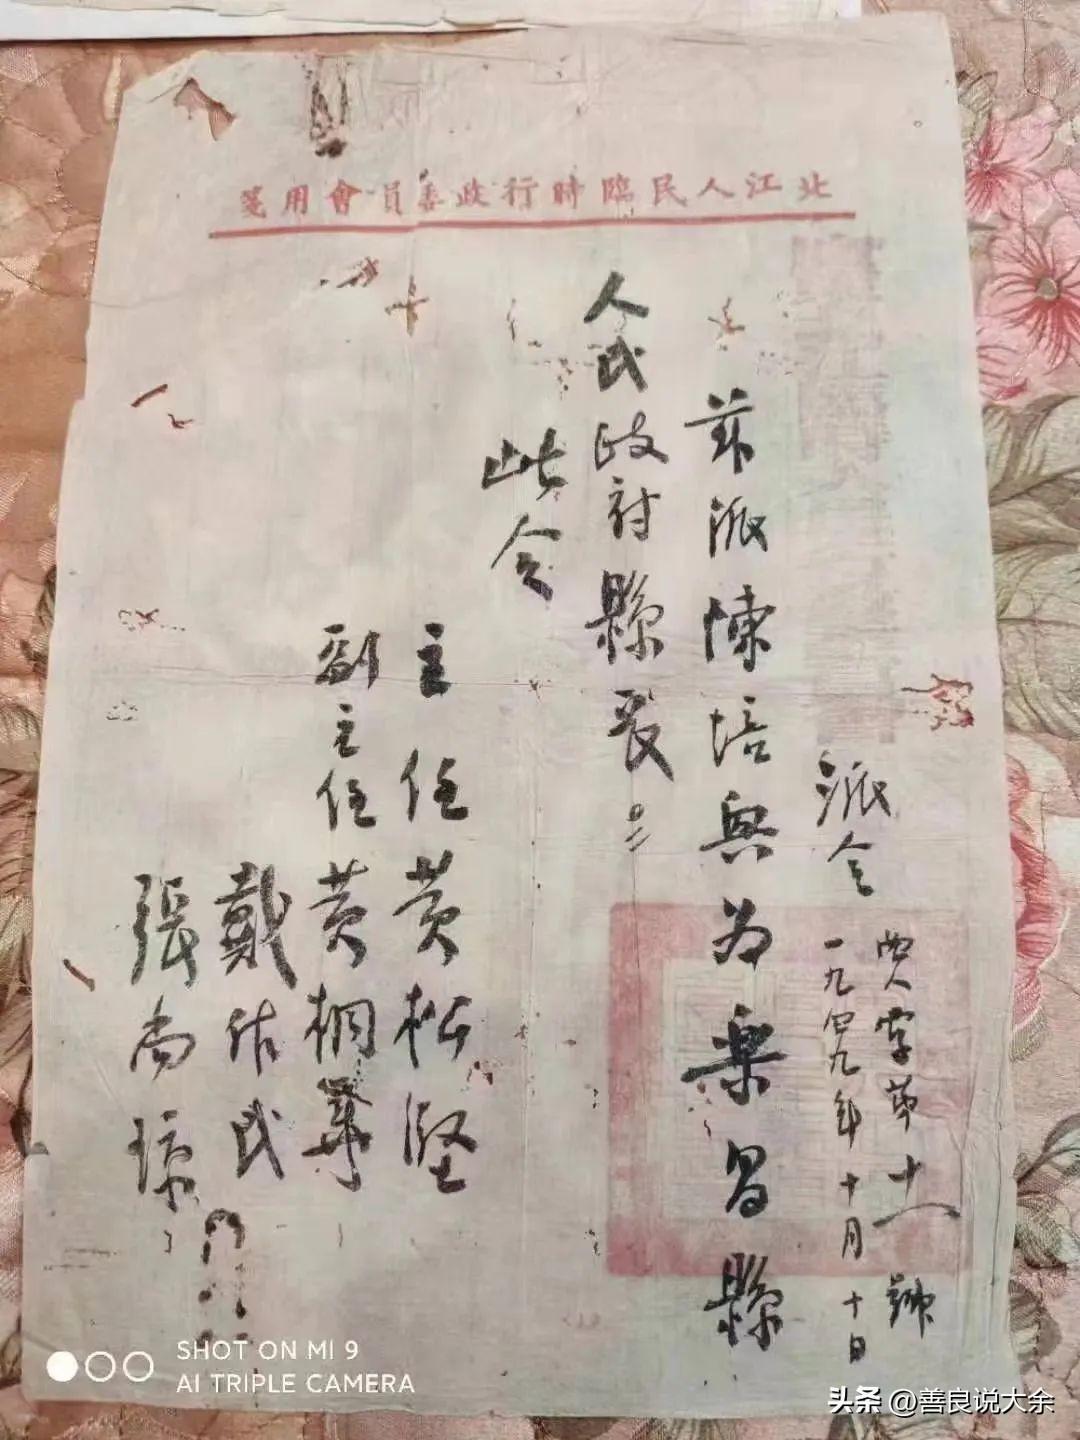 北江人民臨時行政委員會用箋
派令
字第十號
一九四九年十月十日
茲派陳培興為樂昌縣
人民政府縣長
此令
主任黃松堅
副主任黃桐華
戴作民
張尚瓊
SHOT ON MI 9
AI TRIPLE CAMERA
头条 @善良说大余